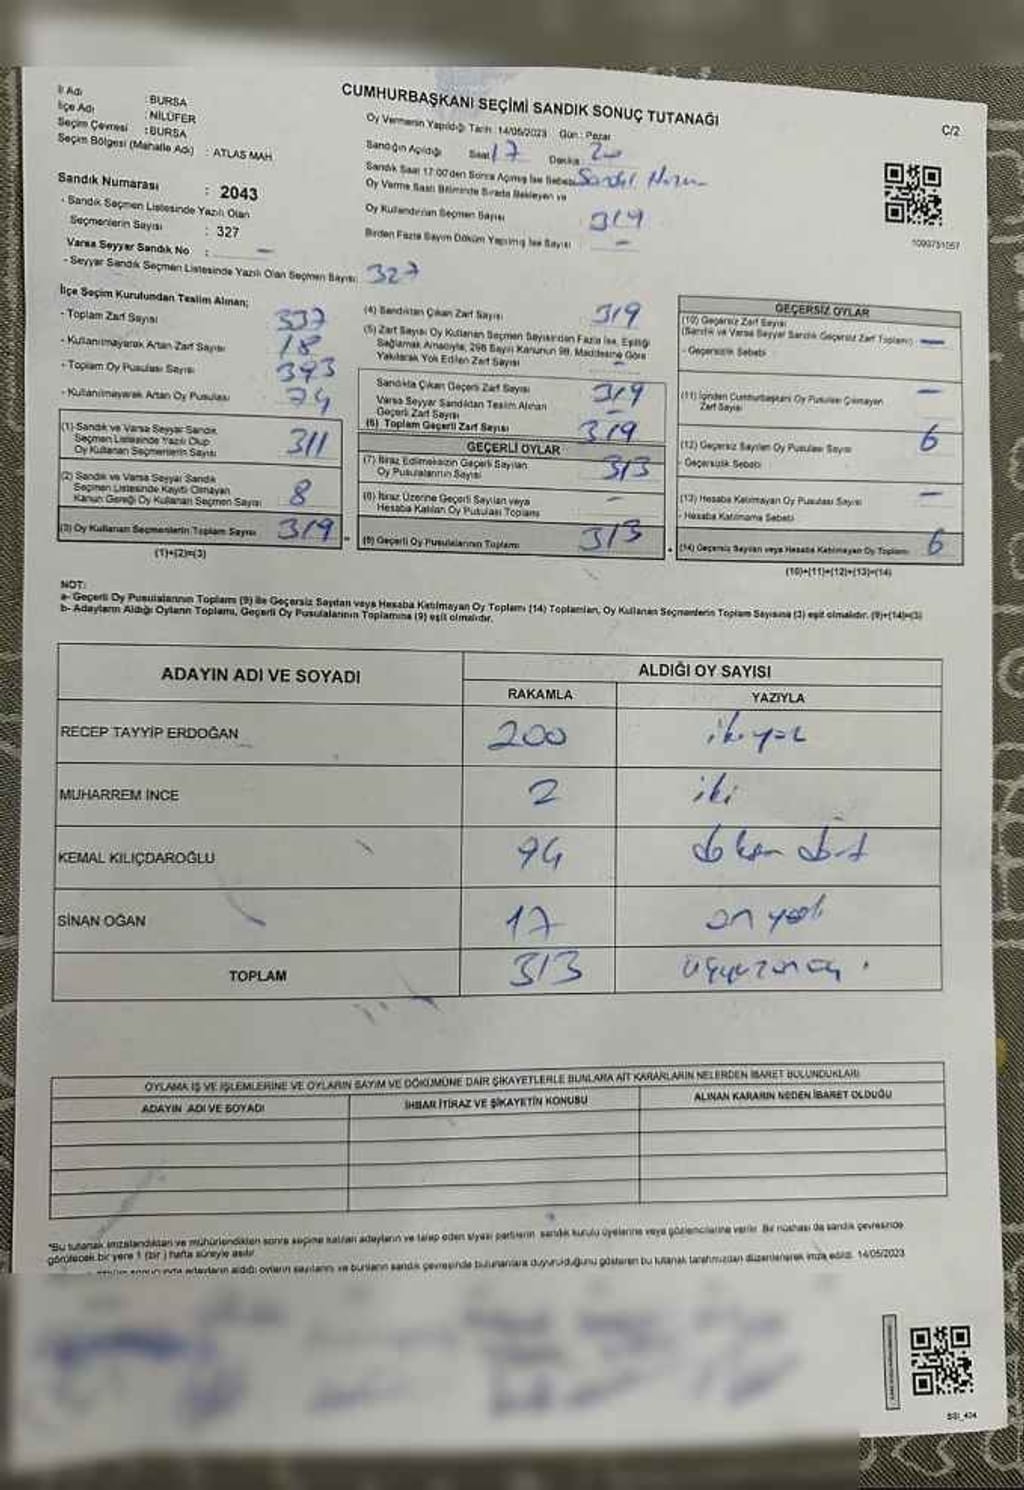 CUMHURBAŞKANI SEÇİMİ SANDIK SONUÇ TUTANAĞI
C/2
İl Adı : BURSA
İlçe Adı : NİLÜFER
Seçim Çevresi : BURSA
Seçim Bölgesi (Mahalle Adı) : ATLAS MAH.
Sandık Numarası : 2043
- Sandık Seçmen Listesinde Yazılı Olan
Seçmenlerin Sayısı : 327
Varsa Seyyar Sandık No : -
- Seyyar Sandık Seçmen Listesinde Yazılı Olan Seçmen Sayısı: 327
Oy Vermenin Yapıldığı Tarih: 14/05/2023 Gün : Pazar
Sandığın Açıldığı Saat 17 Dakika 20
Sandık Saat 17:00'den Sonra Açılmış İse Sebebi
Oy Verme Saati Bitiminde Sırada Bekleyen ve
Oy Kullandırılan Seçmen Sayısı 319
Birden Fazla Sayım Döküm Yapılmış İse Sayısı -
1090751057
İlçe Seçim Kurulundan Teslim Alınan;
- Toplam Zarf Sayısı 337
- Kullanılmayarak Artan Zarf Sayısı 18
- Toplam Oy Pusulası Sayısı 393
- Kullanılmayarak Artan Oy Pusulası 74
(1) Sandık ve Varsa Seyyar Sandık
Seçmen Listesinde Yazılı Olup
Oy Kullanan Seçmenlerin Sayısı 311
(2) Sandık ve Varsa Seyyar Sandık
Seçmen Listesinde Kayıtlı Olmayan
Kanun Gereği Oy Kullanan Seçmen Sayısı 8
(3) Oy Kullanan Seçmenlerin Toplam Sayısı 319
(1)+(2)=(3)
(4) Sandıktan Çıkan Zarf Sayısı 319
(5) Zarf Sayısı Oy Kullanan Seçmen Sayısından Fazla İse, Eşitliği
Sağlamak Amacıyla, 298 Sayılı Kanunun 98. Maddesine Göre
Yakılarak Yok Edilen Zarf Sayısı -
Sandıkta Çıkan Geçerli Zarf Sayısı 319
Varsa Seyyar Sandıktan Teslim Alınan
Geçerli Zarf Sayısı -
(6) Toplam Geçerli Zarf Sayısı 319
GEÇERLİ OYLAR
(7) İtiraz Edilmeksizin Geçerli Sayılan
Oy Pusulalarının Sayısı 313
(8) İtiraz Üzerine Geçerli Sayılan veya
Hesaba Katılan Oy Pusulası Toplamı -
(9) Geçerli Oy Pusulalarının Toplamı 313
GEÇERSİZ OYLAR
(10) Geçersiz Zarf Sayısı
(Sandık ve Varsa Seyyar Sandık Geçersiz Zarf Toplamı) -
- Geçersizlik Sebebi
(11) İçinden Cumhurbaşkanı Oy Pusulası Çıkmayan
Zarf Sayısı -
(12) Geçersiz Sayılan Oy Pusulası Sayısı 6
- Geçersizlik Sebebi
(13) Hesaba Katılmayan Oy Pusulası Sayısı -
- Hesaba Katılmama Sebebi
(14) Geçersiz Sayılan veya Hesaba Katılmayan Oy Toplamı 6
(10)+(11)+(12)+(13)=(14)
NOT:
a- Geçerli Oy Pusulalarının Toplamı (9) ile Geçersiz Sayılan veya Hesaba Katılmayan Oy Toplamı (14) Toplamları, Oy Kullanan Seçmenlerin Toplam Sayısına (3) eşit olmalıdır. (9)+(14)=(3)
b- Adayların Aldığı Oyların Toplamı, Geçerli Oy Pusulalarının Toplamına (9) eşit olmalıdır.
ADAYIN ADI VE SOYADI ALDIĞI OY SAYISI
RAKAMLA YAZIYLA
RECEP TAYYİP ERDOĞAN 200 ikiyüz
MUHARREM İNCE 2 iki
KEMAL KILIÇDAROĞLU 94 doksan dört
SİNAN OĞAN 17 on yedi
TOPLAM 313 üçyüzonüç
OYLAMA İŞ VE İŞLEMLERİNE VE OYLARIN SAYIM VE DÖKÜMÜNE DAİR ŞİKAYETLERLE BUNLARA AİT KARARLARIN NELERDEN İBARET BULUNDUKLARI
ADAYIN ADI VE SOYADI İHBAR İTİRAZ VE ŞİKAYETİN KONUSU ALINAN KARARIN NEDEN İBARET OLDUĞU
*Bu tutanak imzalandıktan ve mühürlendikten sonra seçime katılan adayların ve talep eden siyasi partilerin sandık kurulu üyelerine veya gözlemcilerine verilir. Bir nüshası da sandık çevresinde
görülecek bir yere 1 (bir ) hafta süreyle asılır.
adayların aldığı oyların sayılarını ve bunların sandık çevresinde bulunanlara duyurulduğunu gösteren bu tutanak tarafımızdan düzenlenerek imza edildi. 14/05/2023